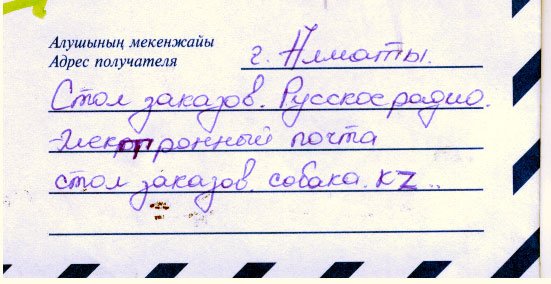 Алушының мекенжайы
Адрес получателя г. Алматы.
Стол заказов. Русское радио.
Электронный почта
стол заказов. собака. KZ..